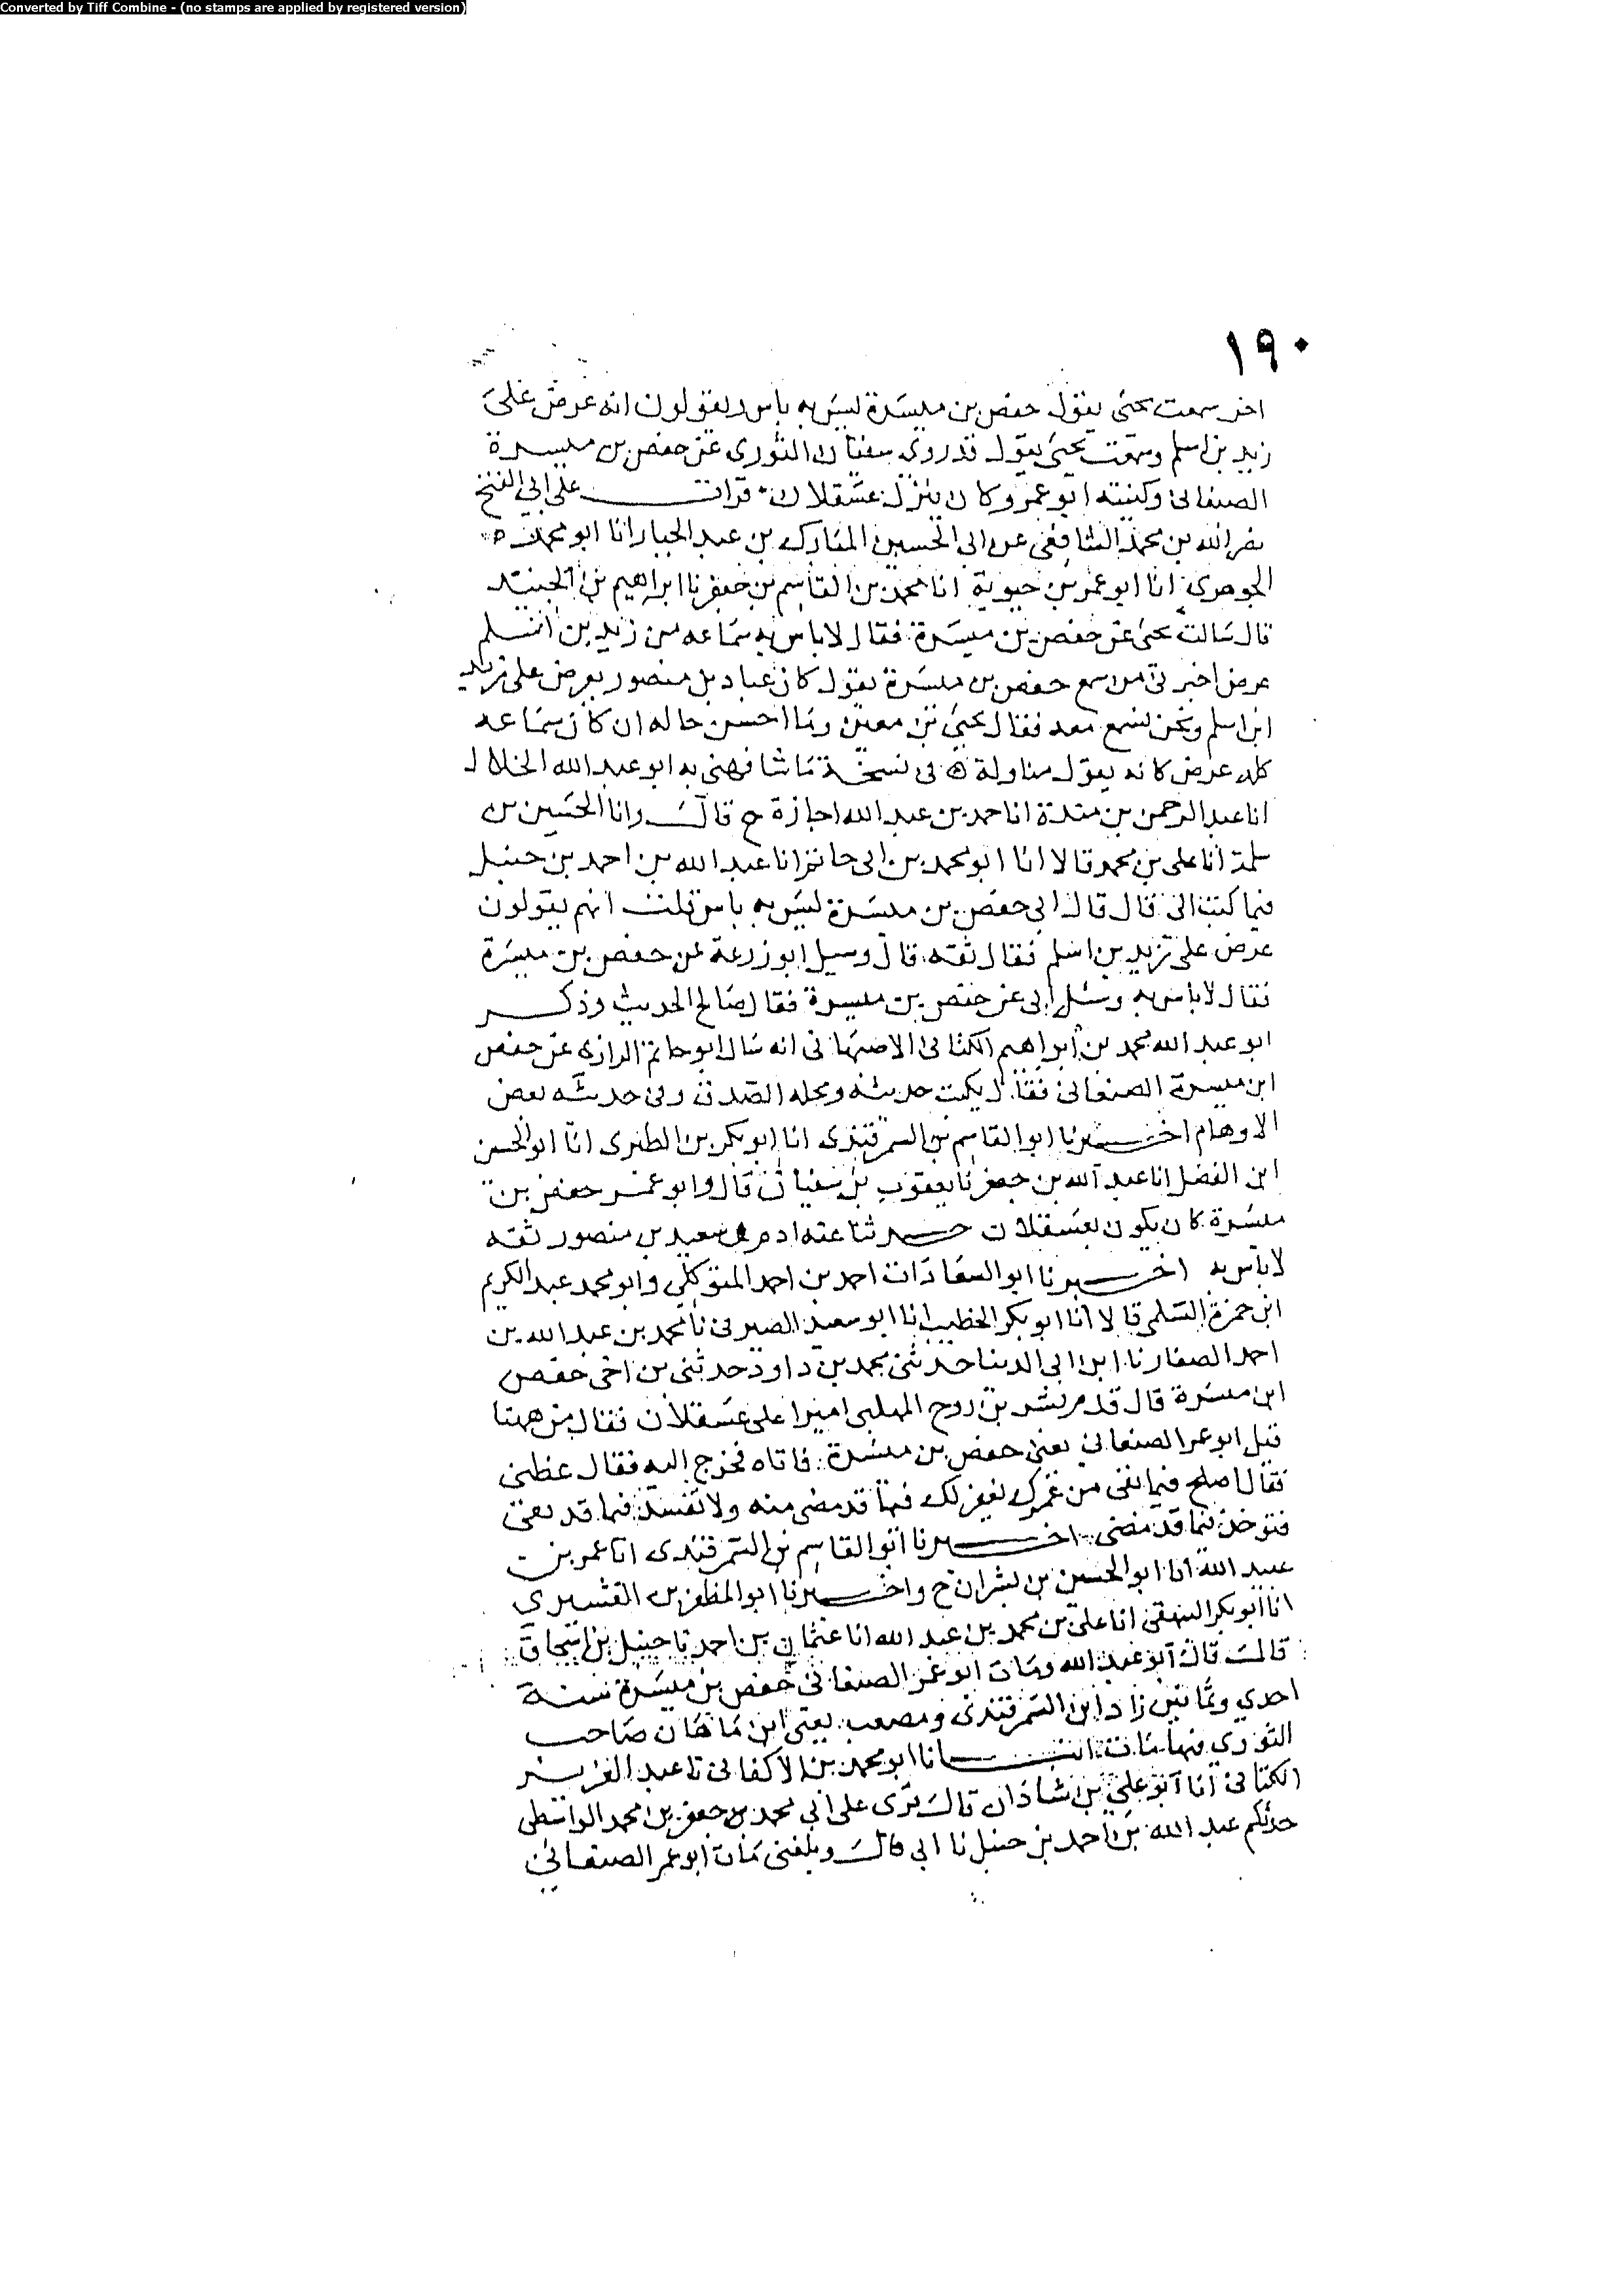 Converted by Tiff Combine - (no stamps are applied by registered version)
١٩٠
اخر سمعت يحيى يقول حفص بن ميسرة ليس به باس ويقولون انه عرض على
زيد بن اسلم وسمعت يحيى يقول قد روى سفيان الثوري عن حفص بن ميسرة
الصنعاني وكنيته ابو عمر وكان ينزل عسقلان قرات على ابي الفتح
نصر الله بن محمد الشافعي عن ابي الحسين المبارك بن عبد الجبار انا ابو محمد
الجوهري انا ابو عمر بن حيوية انا محمد بن القاسم بن جعفر نا ابراهيم بن الجنيد
قال سالت يحيى عن حفص بن ميسرة فقال لا باس به سماعه من زيد بن اسلم
عرض اخبرني من سمع حفص بن ميسرة يقول كان عباد بن منصور يعرض على زيد
ابن اسلم ونحن نسمع معه فقال يحيى بن معين وما احسن حاله ان كان سماعه
كله عرض كانه يقول مناولة ه في نسخة ما شافهني به ابو عبد الله الخلال
انا عبد الرحمن بن مندة انا حمد بن عبد الله اجازة ح قال وانا الحسين بن
سلمة انا علي بن محمد قالا انا ابو محمد بن ابي حاتم انا عبد الله بن احمد بن حنبل
فيما كتب الي قال قال ابي حفص بن ميسرة ليس به باس قلت انهم يقولون
عرض على زيد بن اسلم فقال ثقه قال وسيل ابو زرعة عن حفص بن ميسرة
فقال لا باس به وسئل ابي عن حفص بن ميسرة فقال صالح الحديث وذكر
ابو عبد الله محمد بن ابراهيم الكناني الاصبهاني انه سال ابو حاتم الرازي عن حفص
ابن ميسرة الصنعاني فقال يكتب حديثه ومحله الصدق وفي حديثه بعض
الاوهام اخبرنا ابو القاسم بن السمرقندي انا ابو بكر بن الطبري انا ابو الحسن
ابن الفضل انا عبد الله بن جعفر نا يعقوب بن سفيان قال وابو عمر حفص بن
ميسرة كان يكون بعسقلان حدثنا عنه ادم وسعيد بن منصور ثقه
لا باس به اخبرنا ابو السعادات احمد بن احمد المتوكلي وابو محمد عبد الكريم
ابن حمزة السلمي قالا انا ابو بكر الخطيب انا ابو سعيد الصيرفي نا محمد بن عبد الله بن
احمد الصفار نا ابن ابي الدنيا حدثني محمد بن داود حدثني بن اخي حفص
ابن ميسرة قال قدم بشر بن روح المهلبي اميرا على عسقلان فقال من ههنا
قيل ابو عمر الصنعاني يعني حفص بن ميسرة فاتاه فخرج اليه فقال عظني
فقال اصلح فيما بقي من عمرك يغفر لك فيما قد مضى منه ولا تفسد فيما قد بقي
فتوخذ بما قد مضى اخبرنا ابو القاسم بن السمرقندي انا عمر بن
عبيد الله انا ابو الحسين بن بشران ح واخبرنا ابو المظفر بن القشيري
انا ابو بكر البيهقي انا علي بن محمد بن عبد الله انا عثمان بن احمد نا حنبل بن اسحاق
قال قال ابو عبد الله ومات ابو عمر الصنعاني حفص بن ميسرة سنة
احدي وثمانين زاد ابن السمرقندي ومصعب يعني ابن ماهان صاحب
الثوري فيها مات انبانا ابو محمد بن الاكفاني نا عبد العزيز
الكتاني انا ابو علي بن شاذان قال قرى على ابي محمد بن جعفر بن محمد الواسطي
حدثكم عبد الله بن احمد بن حنبل نا ابي قال وبلغني مات ابو عمر الصنعاني